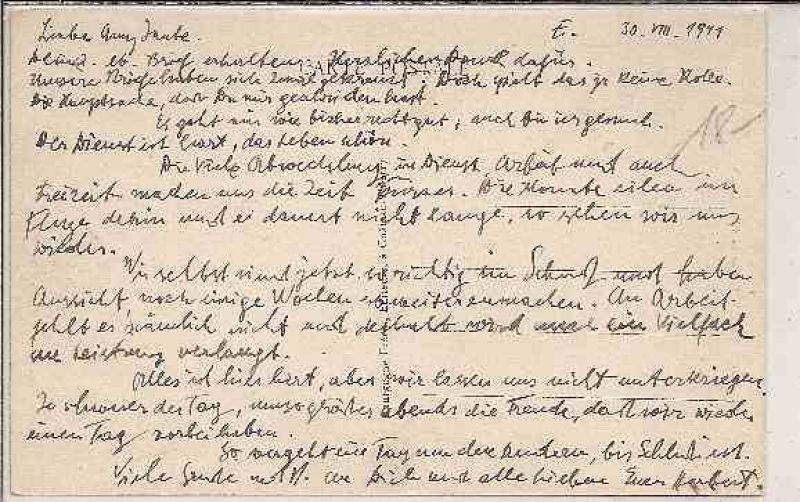 Liebe Anny Tante. E. 30. VIII. 1941
Deinen lb. Brief erhalten. Herzlichen Dank dafür.
Unsere Briefe haben sich zwar gekreuzt. Doch spielt das ja keine Rolle.
Die Hauptsache, dass Du mir geschrieben hast.
Es geht mir wie bisher recht gut, auch bin ich gesund.
Der Dienst ist hart, das Leben schön.
18
Die viele Abwechslung im Dienst, Arbeit und auch
Freizeit machen uns die Zeit kürzer. Die Monate eilen im
Fluge dahin und es dauert nicht lange, so sehen wir uns
wieder.
Wir selbst sind jetzt so richtig im Schuss und haben
Aussicht noch einige Wochen so weiterzumachen. An Arbeit
fehlt es nämlich nicht und deshalb wird auch ein Vielfach
an Leistung verlangt.
Alles ist hier hart, aber wir lassen uns nicht unterkriegen.
Je schwerer der Tag, umso größer abends die Freude, daß wir wieder
einen Tag vorbei haben.
So vergeht ein Tag um den andern, bis Schluß ist.
Viele Grüße an Dich und alle Lieben Euer Herbert.